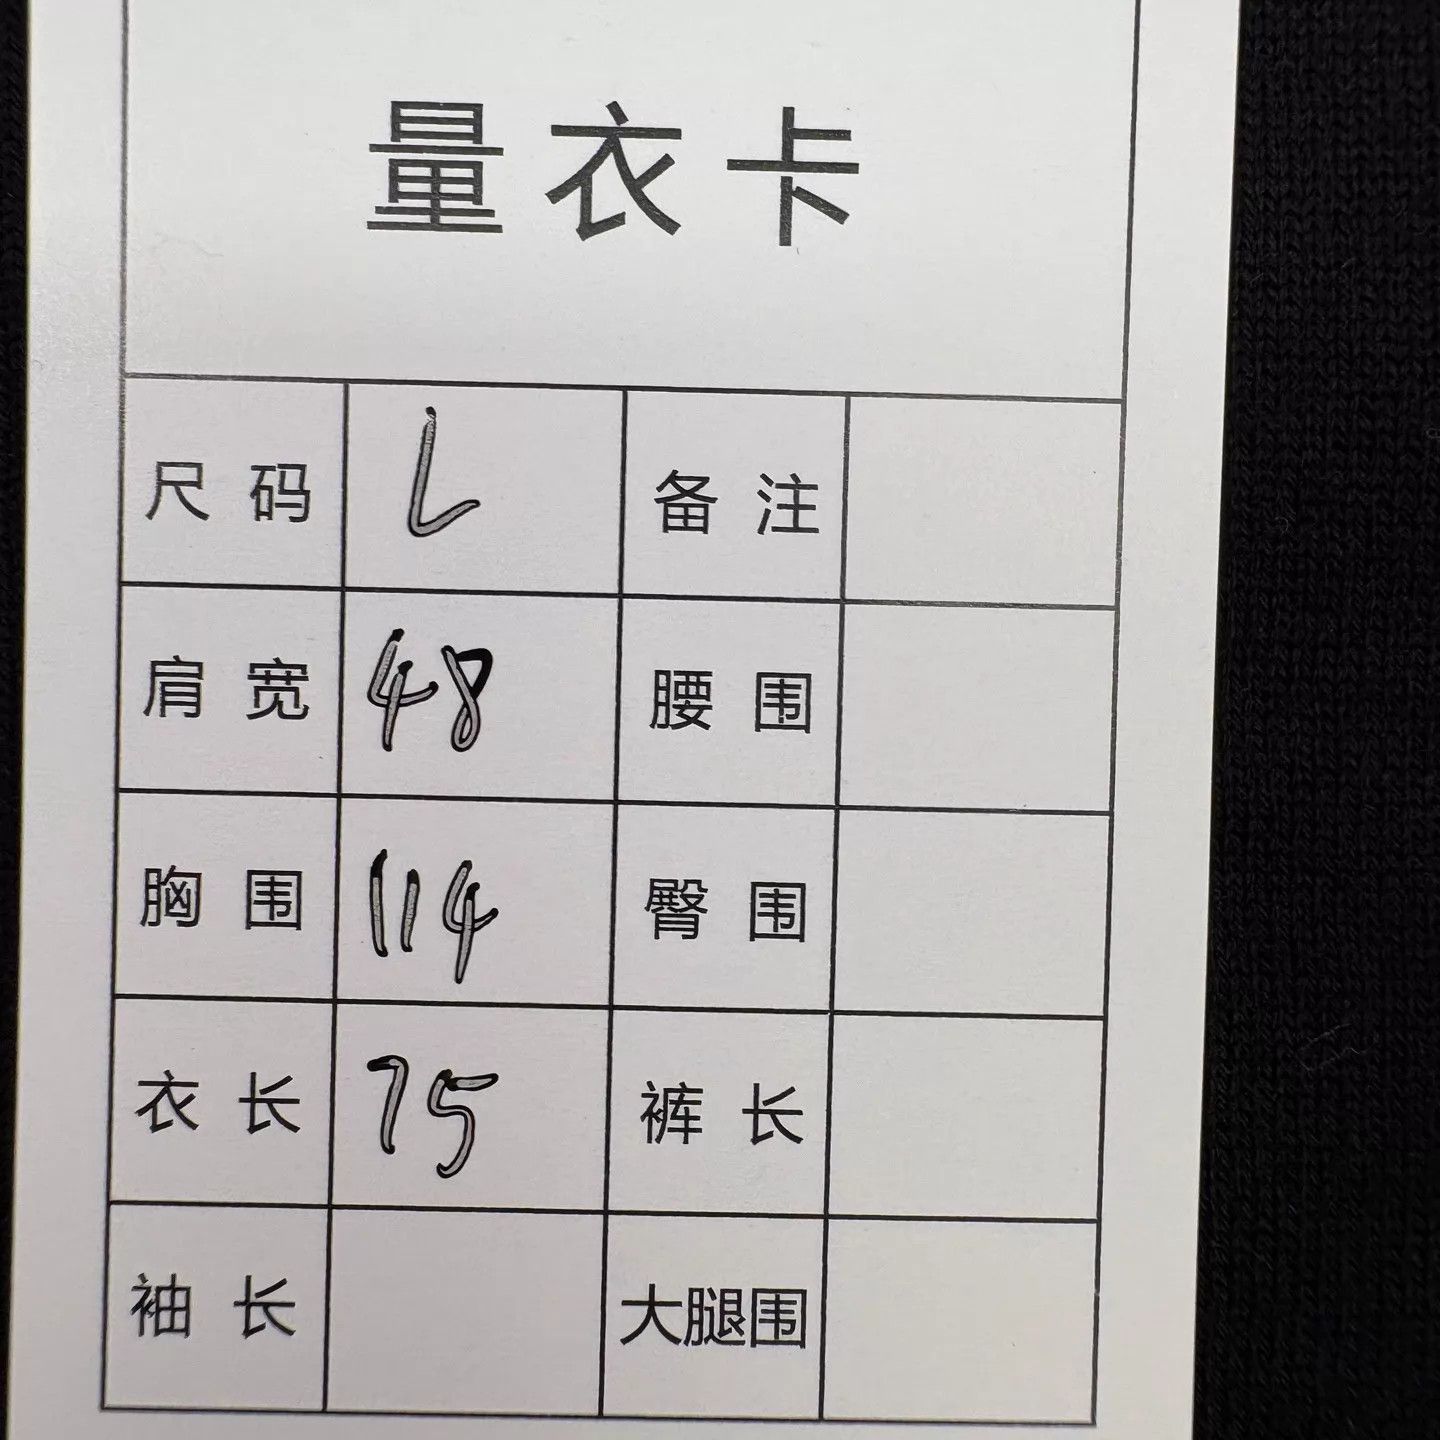 量衣卡
尺码 L 备注
肩宽 48 腰围
胸围 114 臀围
衣长 75 裤长
袖长 大腿围